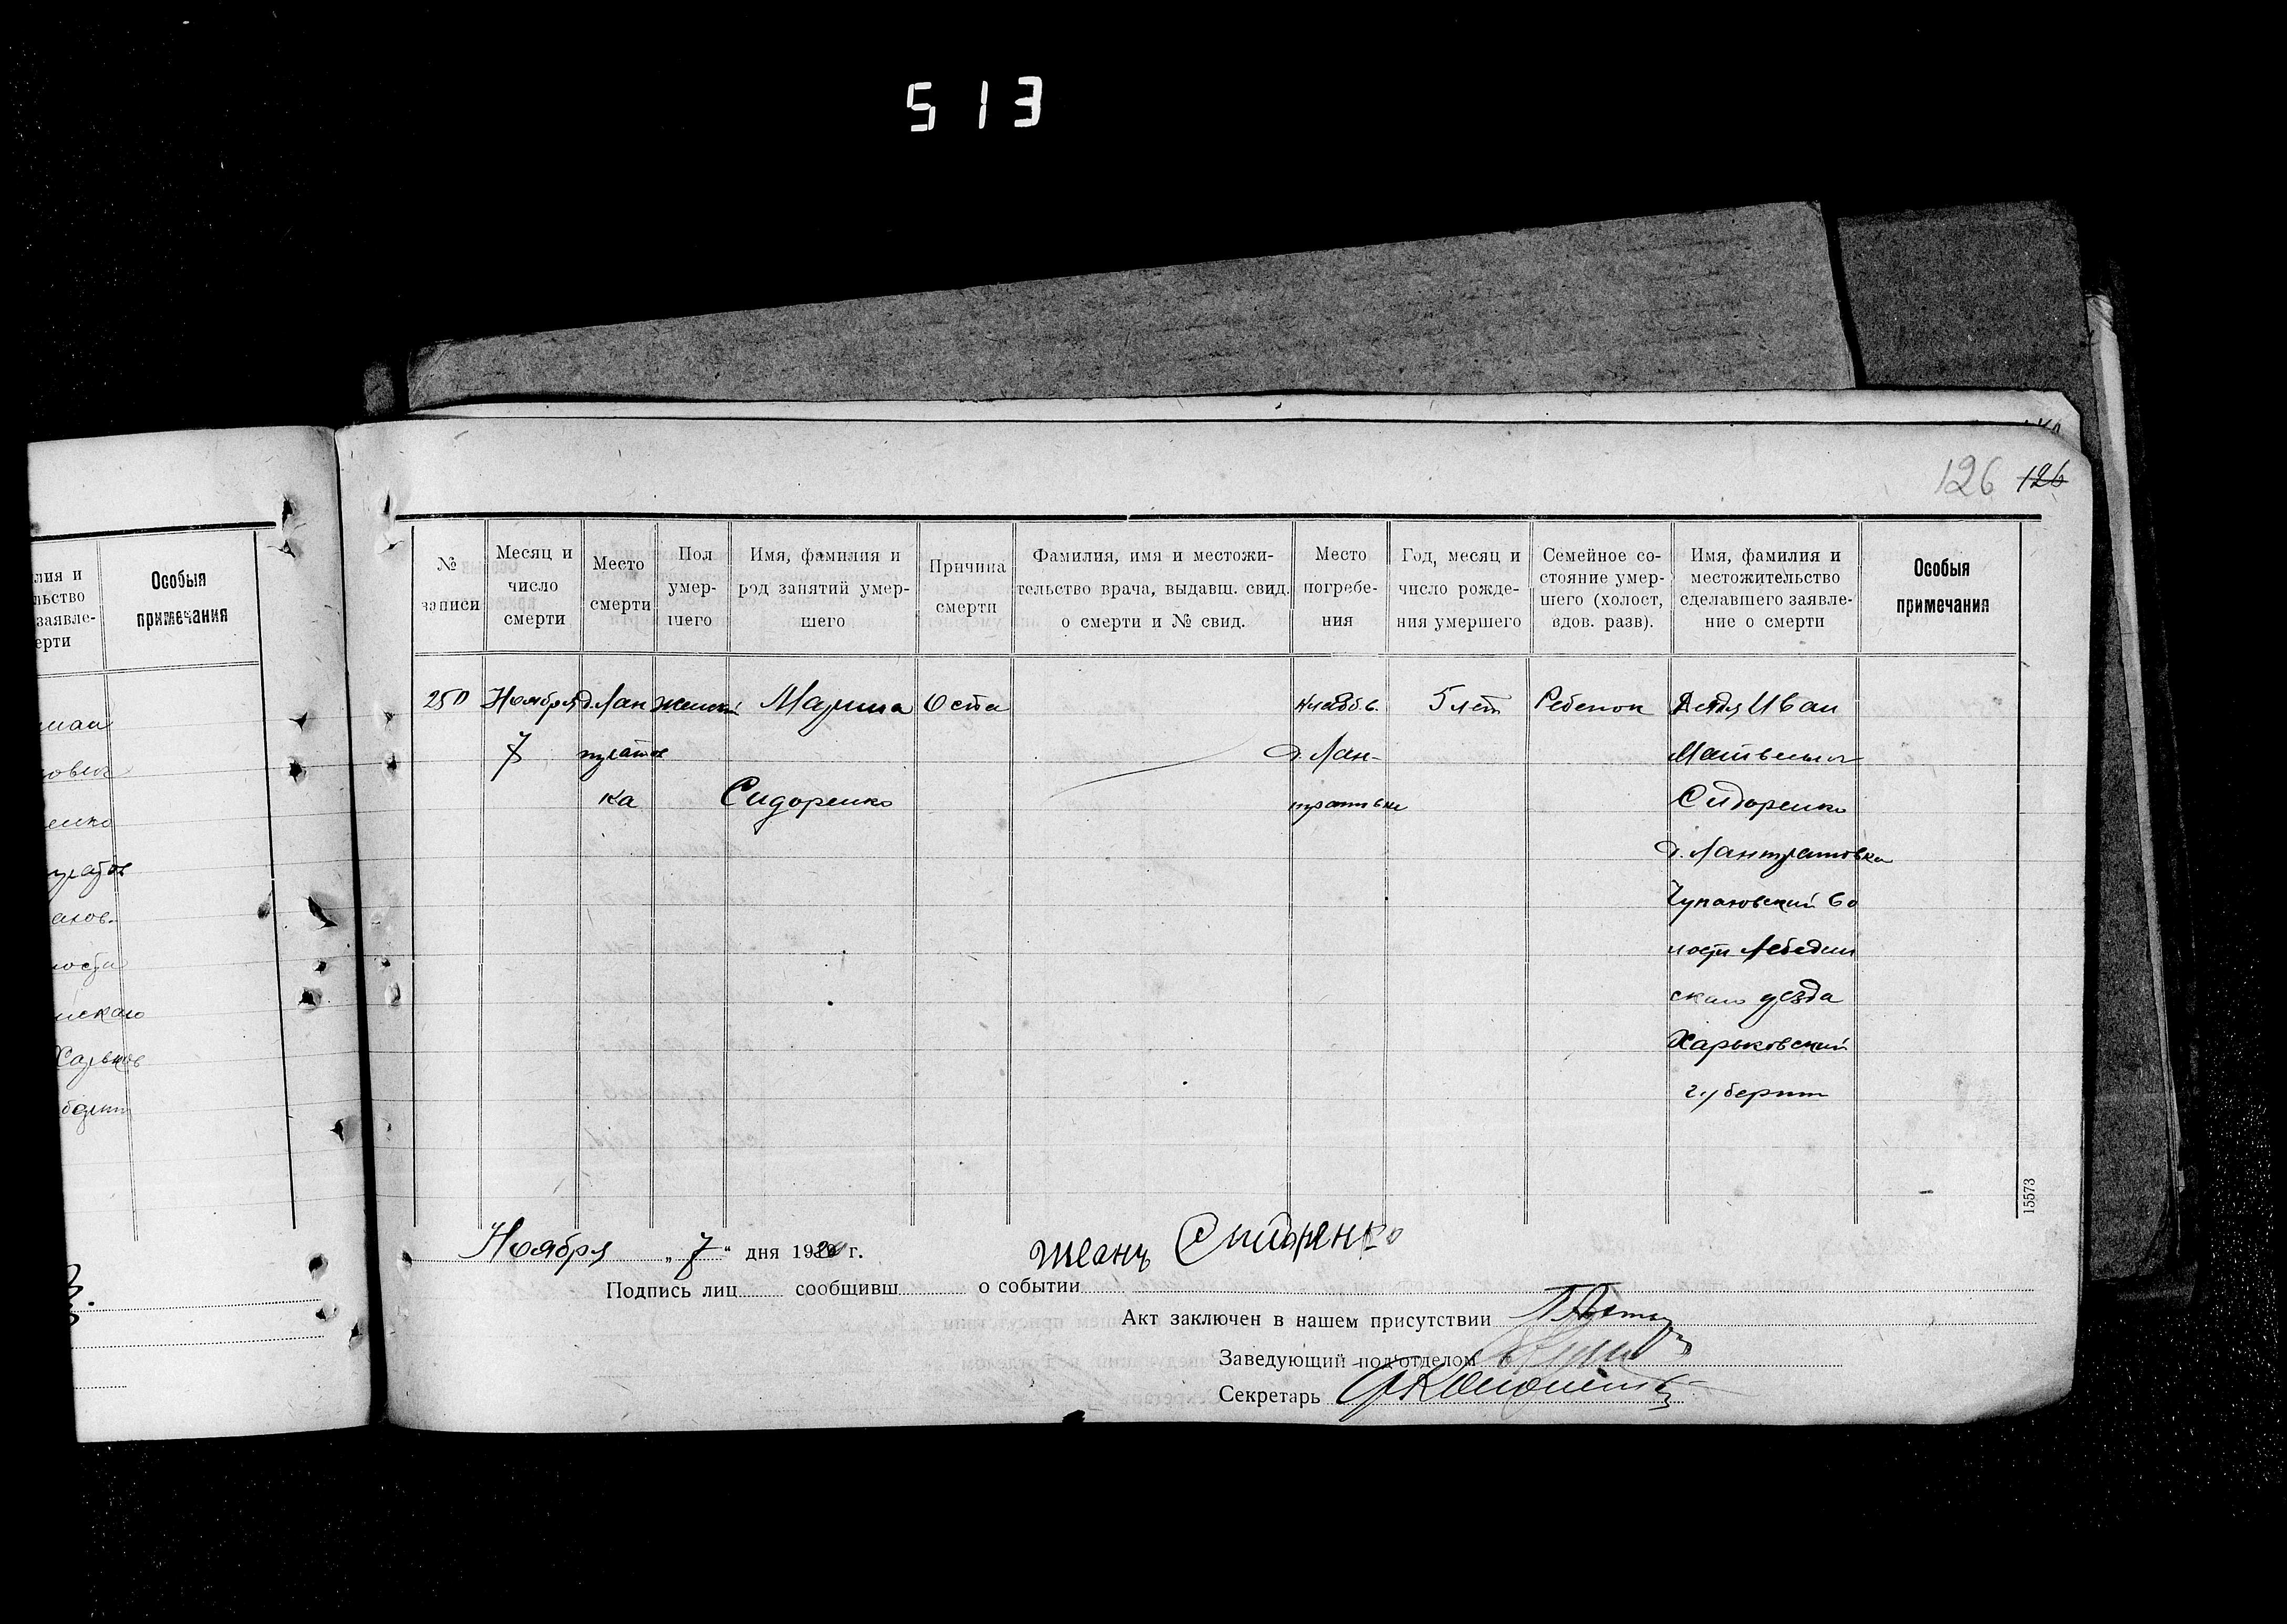 513
126 126
лия и
льство
заявле-
ерти
Особыя
примечания
№
записи
Месяц и
число
смерти
Место
смерти
Пол
умер-
шего
Имя, фамилия и
род занятий умер-
шего
Причина
смерти
Фамилия, имя и местожи-
тельство врача, выдавш. свид.
о смерти и № свид.
Место
погребе-
ния
Год, месяц и
число рожде-
ния умершего
Семейное со-
стояние умер-
шего (холост,
вдов. разв).
Имя, фамилия и
местожительство
сделавшего заявле-
ние о смерти
Особыя
примечания
250
Ноября
7
д. Лан
тратов
ка
женский
Марина
Сидоренко
Оспа
кладб. в.
д. Лан-
тратовке
5 лет
Ребенок
Дядя Иван
Матвеевич
Сидоренко
д. Лантратовка
Чупаховский во
лости Лебедин
скаго уезда
Харьковский
губернии
Ноября „ 7 “ дня 1920 г.
Иванъ Сидоренко
Подпись лиц сообщивш о событии
Акт заключен в нашем присутствии
Заведующий под'отделом
Секретарь
15573